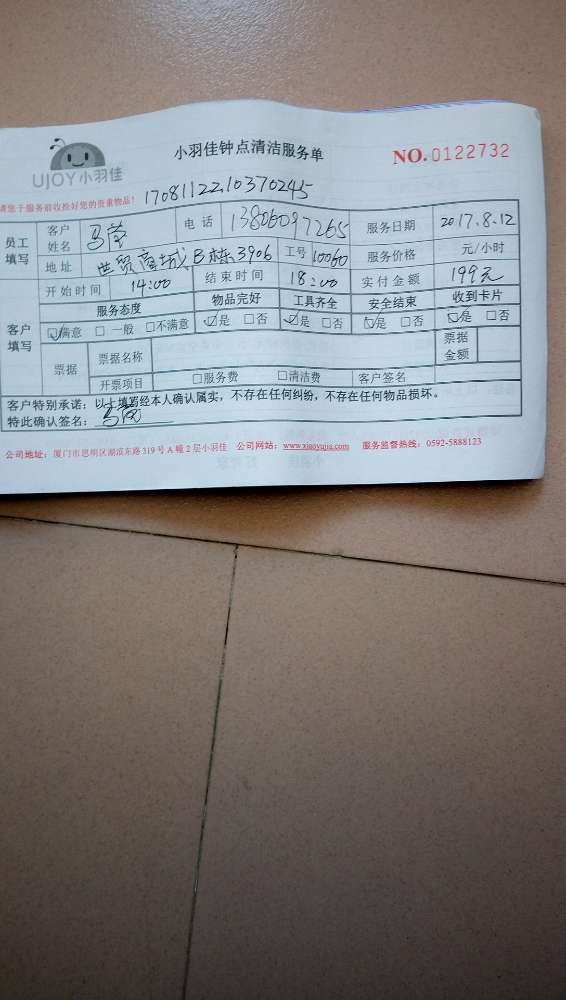 UJOY小羽佳 小羽佳钟点清洁服务单 NO.0122732
请您于服务前收捡好您的贵重物品! 1708112210370245
员工填写 客户姓名 电话 13806097265 服务日期 2017.8.12
地址 世贸商城B栋3906 工号 10060 服务价格 元/小时
开始时间 14:00 结束时间 18:00 实付金额 199元
客户填写 服务态度 物品完好 工具齐全 安全结束 收到卡片
☑满意 □一般 □不满意 ☑是 □否 ☑是 □否 ☑是 □否 ☑是 □否
票据 票据名称 票据金额
开票项目 □服务费 □清洁费 客户签名
客户特别承诺:以上填写经本人确认属实,不存在任何纠纷,不存在任何物品损坏。
特此确认签名:
公司地址:厦门市思明区湖滨东路319号A幢2层小羽佳 公司网站:www.xiaoyujia.com 服务监督热线:0592-5888123